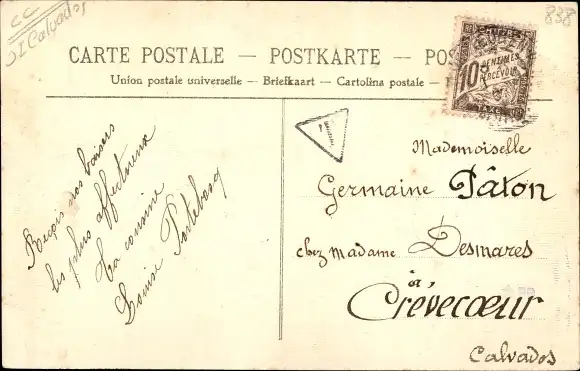 CC
SI Calvados
838
CARTE POSTALE — POSTKARTE — POS
Union postale universelle — Briefkaart — Cartolina postale —
10 CENTIMES
A PERCEVOIR
TAXE
T
Reçois nos baisers
les plus affectueux
Ta cousine
Louise
Mademoiselle
Germaine Pâton
chez Madame Desmares
à
Crèvecœur
Calvados